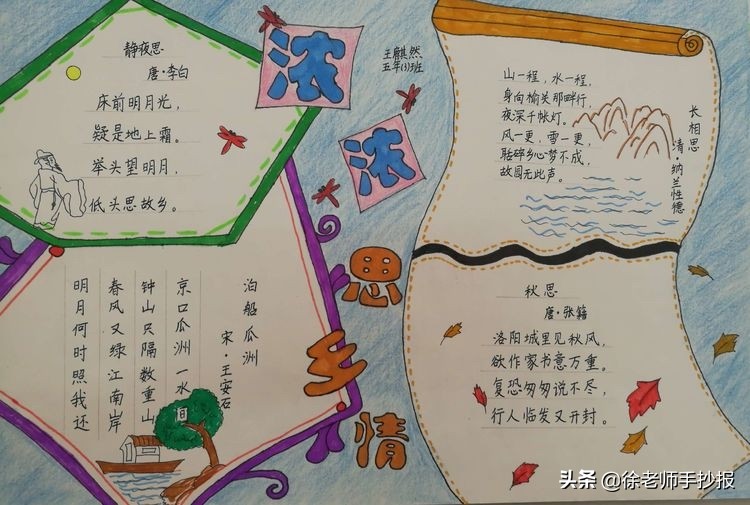 静夜思
唐·李白
床前明月光，
疑是地上霜。
举头望明月，
低头思故乡。
浓
浓
思
乡
情
王麒然
五年(3)班
山一程，水一程，
身向榆关那畔行，
夜深千帐灯。
风一更，雪一更，
聒碎乡心梦不成，
故园无此声。
长相思
清·纳兰性德
泊船瓜洲
宋·王安石
京口瓜洲一水间
钟山只隔数重山
春风又绿江南岸
明月何时照我还
秋思
唐·张籍
洛阳城里见秋风，
欲作家书意万重。
复恐匆匆说不尽，
行人临发又开封。
头条 @徐老师手抄报